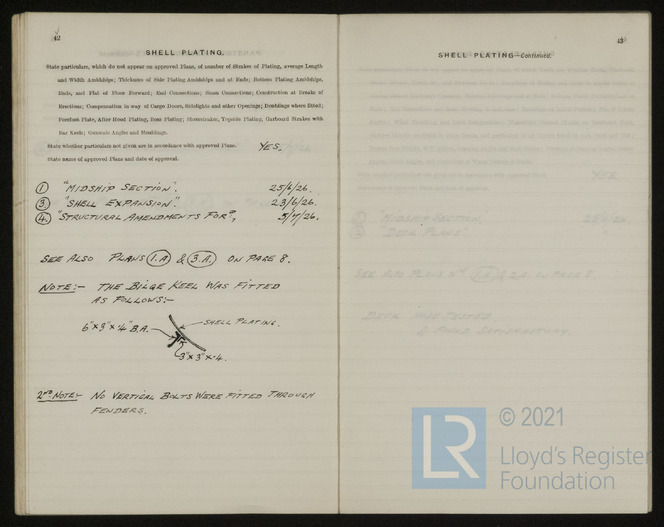 42
SHELL PLATING.
State particulars, which do not appear on approved Plans, of number of Strakes of Plating, average Length
and Width Amidships; Thickness of Side Plating Amidships and at Ends; Bottom Plating Amidships,
Ends, and Flat of Floor Forward; End Connections; Seam Connections; Construction at Breaks of
Erections; Compensation in way of Cargo Doors, Sidelights and other Openings; Doublings where fitted;
Forefoot Plate, After Hood Plating, Boss Plating; Sheerstrakes, Topside Plating, Garboard Strakes with
Bar Keels; Gunwale Angles and Mouldings.
State whether particulars not given are in accordance with approved Plans. YES.
State name of approved Plans and date of approval.
① "MIDSHIP SECTION". 25/6/26.
③ "SHELL EXPANSION". 23/6/26.
④ "STRUCTURAL AMENDMENTS FOR", 5/7/26.
SEE ALSO PLANS 1.A & 3.A. ON PAGE 8.
NOTE:- THE BILGE KEEL WAS FITTED
AS FOLLOWS:-
SHELL PLATING.
6"x3"x¼" B.A.
3"x3"x.4.
2ND NOTE:- NO VERTICAL BOLTS WERE FITTED THROUGH
FENDERS.
43
SHELL PLATING—Continued.
LR
© 2021
Lloyd's Register
Foundation